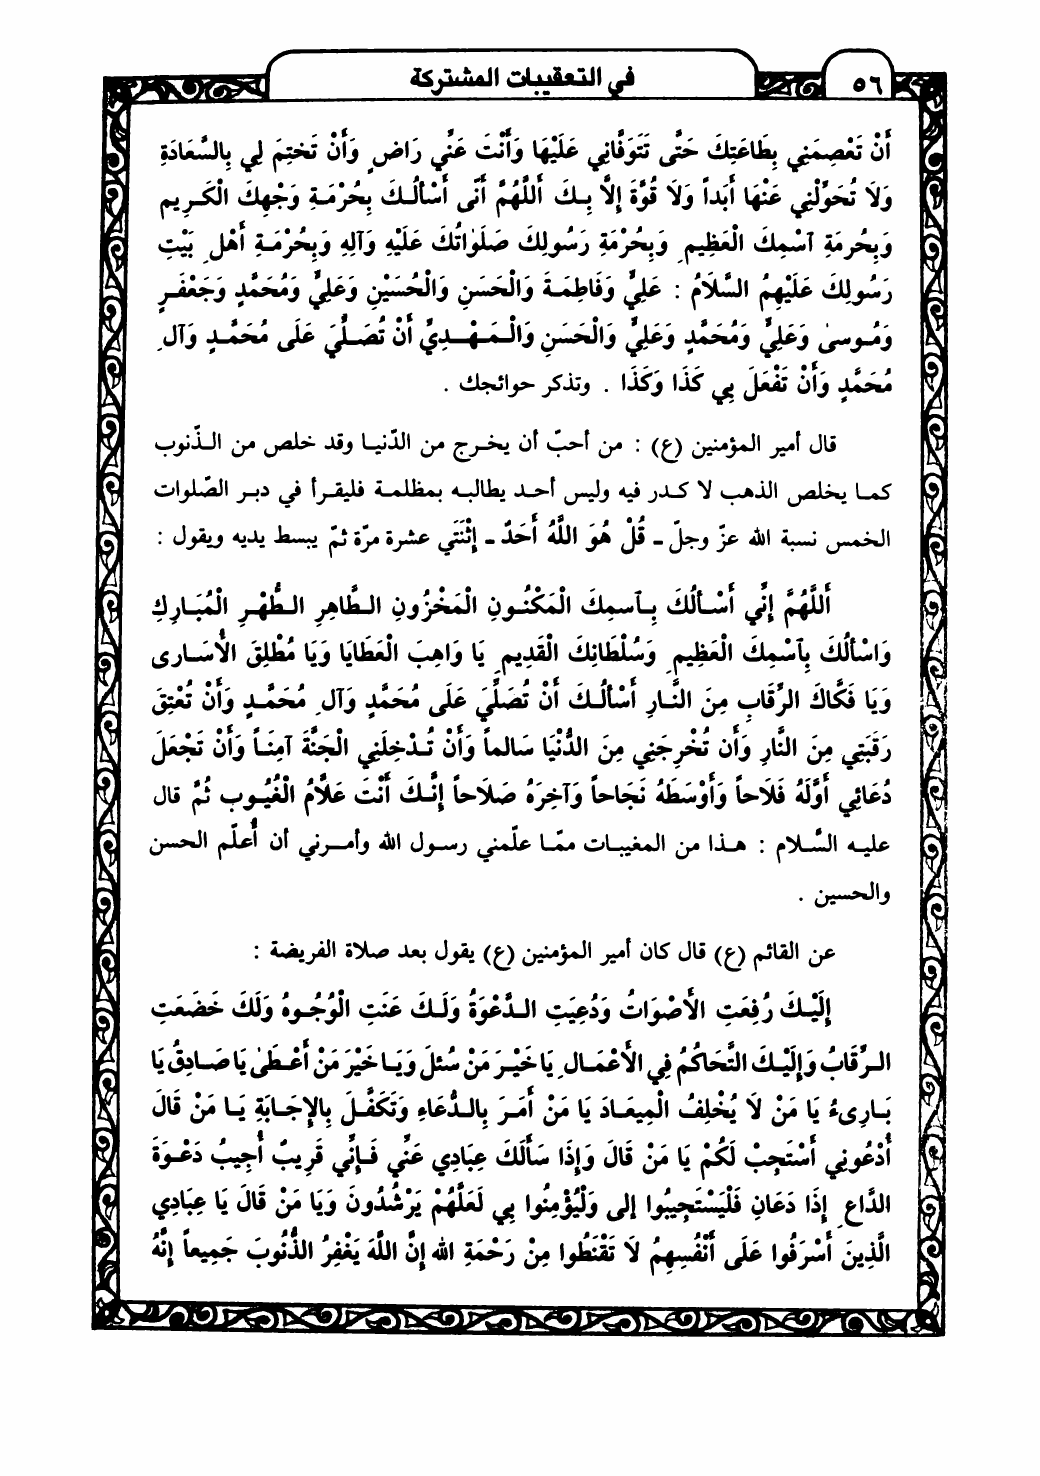 ٥٦
في التعقيبات المشتركة
أَنْ تَعْصِمَنِي بِطَاعَتِكَ حَتَّى تَتَوَفَّانِي عَلَيْهَا وَأَنْتَ عَنِّي رَاضٍ وَأَنْ تَخْتِمَ لِي بِالسَّعَادَةِ
وَلَا تُحَوِّلْنِي عَنْهَا أَبَداً وَلَا قُوَّةَ إِلَّا بِكَ اَللَّهُمَّ أَنّى أَسْأَلُكَ بِحُرْمَةِ وَجْهِكَ الْكَرِيمِ
وَبِحُرمَةِ آسْمِكَ الْعَظِيمِ وَبِحُرْمَةِ رَسُولِكَ صَلَوٰاتُكَ عَلَيْهِ وَآلِهِ وَبِحُرْمَةِ أَهْلِ بَيْتِ
رَسُولِكَ عَلَيْهِمُ السَّلَامُ : عَلِيٍّ وَفَاطِمَةَ وَالْحَسَنِ وَالْحُسَيْنِ وَعَلِيٍّ وَمُحَمَّدٍ وَجَعْفَرٍ
وَمُوسىٰ وَعَلِيٍّ وَمُحَمَّدٍ وَعَلِيٍّ وَالْحَسَنِ وَالْمَهْدِيِّ أَنْ تُصَلِّيَ عَلَى مُحَمَّدٍ وَآلِ
مُحَمَّدٍ وَأَنْ تَفْعَلَ بِي كَذَا وَكَذَا . وتذكر حوائجك .
قال أمير المؤمنين (ع) : من أحبّ أن يخرج من الدّنيا وقد خلص من الذّنوب
كما يخلص الذهب لا كدر فيه وليس أحد يطالبه بمظلمة فليقرأ في دبر الصّلوات
الخمس نسبة الله عزّ وجلّ ـ قُلْ هُوَ اللَّهُ أَحَدٌ ـ إِثْنَتَي عشرة مرّة ثمّ يبسط يديه ويقول :
أَللَّهُمَّ إِنِّي أَسْأَلُكَ بِآسمِكَ الْمَكْنُونِ الْمَخْزُونِ الطَّاهِرِ الطُّهْرِ الْمُبَارِكِ
وَاسْأَلُكَ بِآسْمِكَ الْعَظِيمِ وَسُلْطَانِكَ الْقَدِيمِ يَا وَاهِبَ الْعَطَايَا وَيَا مُطْلِقَ الأُسَارى
وَيَا فَكَّاكَ الرِّقَابِ مِنَ النَّارِ أَسْأَلُكَ أَنْ تُصَلِّيَ عَلَى مُحَمَّدٍ وَآلِ مُحَمَّدٍ وَأَنْ تُعْتِقَ
رَقَبَتِي مِنَ النَّارِ وَأَن تُخْرِجَنِي مِنَ الدُّنْيَا سَالماً وَأَنْ تُدْخِلَنِي الْجَنَّةَ آمِنَاً وَأَنْ تَجْعَلَ
دُعَائِي أَوَّلَهُ فَلَاحاً وَأَوْسَطَهُ نَجَاحاً وَآخِرَهُ صَلَاحاً إِنَّكَ أَنْتَ عَلَّامُ الْغُيُوبِ ثُمَّ قال
عليه السَّلام : هذا من المغيبات ممّا علّمني رسول الله وأمرني أن أُعلّم الحسن
والحسين .
عن القائم (ع) قال كان أمير المؤمنين (ع) يقول بعد صلاة الفريضة :
إِلَيْكَ رُفِعَتِ الأَصْوَاتُ وَدُعِيَتِ الدَّعْوَةُ وَلَكَ عَنَتِ الْوُجُوهُ وَلَكَ خَضَعَتِ
الرِّقَابُ وَإِلَيْكَ التَّحَاكُمُ فِي الأَعْمَالِ يَا خَيْرَ مَنْ سُئلَ وَيَا خَيْرَ مَنْ أَعْطَىٰ يَا صَادِقُ يَا
بَارِىءُ يَا مَنْ لَا يُخْلِفُ الْمِيعَادَ يَا مَنْ أَمَرَ بِالدُّعَاءِ وَتَكَفَّلَ بِالإِجَابَةِ يَا مَنْ قَالَ
أُدْعُونِي أَسْتَجِبْ لَكُمْ يَا مَنْ قَالَ وَإِذَا سَأَلَكَ عِبَادِي عَنِّي فَإِنِّي قَرِيبٌ أُجِيبُ دَعْوَةَ
الدَّاعِ إِذَا دَعَانِ فَلْيَسْتَجِيبُوا إلى وَلْيُؤْمِنُوا بِي لَعَلَّهُمْ يَرْشُدُونَ وَيَا مَنْ قَالَ يَا عِبَادِي
الَّذِينَ أَسْرَفُوا عَلَى أَنْفُسِهِمُ لَا تَقْنَطُوا مِنْ رَحْمَةِ الله إِنَّ اللَّهَ يَغْفِرُ الذُّنُوبَ جَمِيعاً إِنَّهُ